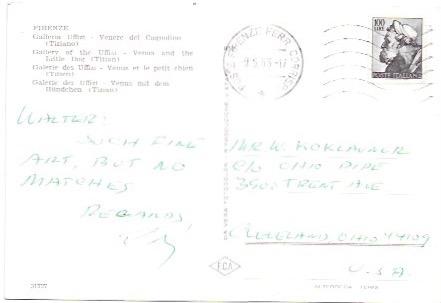 FIRENZE
Galleria Uffizi - Venere del Cagnolino
(Tiziano)
Gallery of the Uffizi - Venus and the
Little Dog (Titian)
Galerie des Uffizi - Venus et le petit chien
(Titien)
Galerie der Uffizi - Venus mit dem
Hündchen (Tizian)
100
LIRE
POSTE ITALIANE
WALTER:
SUCH FINE
ART, BUT NO
MATCHES
REGARDS,
MR W.
C/O OHIO PIPE
3900 TRENT AVE
CLEVELAND, OHIO 44109
U.S.A.
FCA